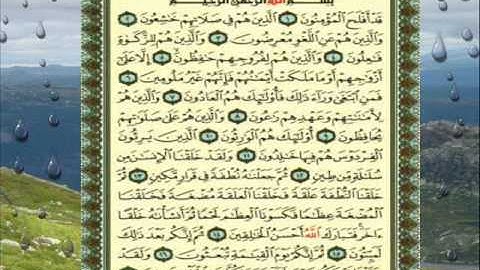 بِسْمِ اللَّهِ الرَّحْمَٰنِ الرَّحِيمِ
قَدْ أَفْلَحَ الْمُؤْمِنُونَ ١ الَّذِينَ هُمْ فِي صَلَاتِهِمْ خَٰشِعُونَ ٢
وَالَّذِينَ هُمْ عَنِ اللَّغْوِ مُعْرِضُونَ ٣ وَالَّذِينَ هُمْ لِلزَّكَوٰةِ
فَٰعِلُونَ ٤ وَالَّذِينَ هُمْ لِفُرُوجِهِمْ حَٰفِظُونَ ٥ إِلَّا عَلَىٰ
أَزْوَٰجِهِمْ أَوْ مَا مَلَكَتْ أَيْمَٰنُهُمْ فَإِنَّهُمْ غَيْرُ مَلُومِينَ ٦
فَمَنِ ابْتَغَىٰ وَرَاءَ ذَٰلِكَ فَأُولَٰئِكَ هُمُ الْعَادُونَ ٧ وَالَّذِينَ هُمْ
لِأَمَٰنَٰتِهِمْ وَعَهْدِهِمْ رَٰعُونَ ٨ وَالَّذِينَ هُمْ عَلَىٰ صَلَوَٰتِهِمْ
يُحَافِظُونَ ٩ أُولَٰئِكَ هُمُ الْوَٰرِثُونَ ١٠ الَّذِينَ يَرِثُونَ
الْفِرْدَوْسَ هُمْ فِيهَا خَٰلِدُونَ ١١ وَلَقَدْ خَلَقْنَا الْإِنسَٰنَ مِن
سُلَٰلَةٍ مِّن طِينٍ ١٢ ثُمَّ جَعَلْنَٰهُ نُطْفَةً فِي قَرَارٍ مَّكِينٍ ١٣ ثُمَّ
خَلَقْنَا النُّطْفَةَ عَلَقَةً فَخَلَقْنَا الْعَلَقَةَ مُضْغَةً فَخَلَقْنَا
الْمُضْغَةَ عِظَٰمًا فَكَسَوْنَا الْعِظَٰمَ لَحْمًا ثُمَّ أَنشَأْنَٰهُ خَلْقًا
ءَاخَرَ فَتَبَارَكَ اللَّهُ أَحْسَنُ الْخَٰلِقِينَ ١٤ ثُمَّ إِنَّكُم بَعْدَ ذَٰلِكَ
لَمَيِّتُونَ ١٥ ثُمَّ إِنَّكُمْ يَوْمَ الْقِيَٰمَةِ تُبْعَثُونَ ١٦ وَلَقَدْ